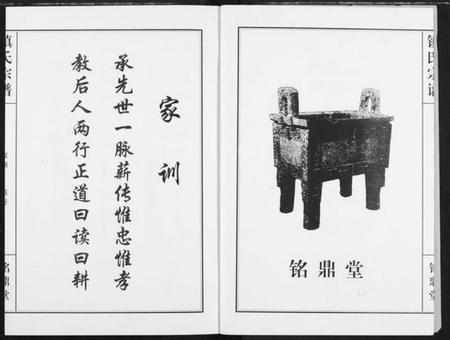 家训
承先世一脉薪传惟忠惟孝
教后人两行正道曰读曰耕
镇氏宗谱
铭鼎堂
铭鼎堂
镇氏宗谱
铭鼎堂